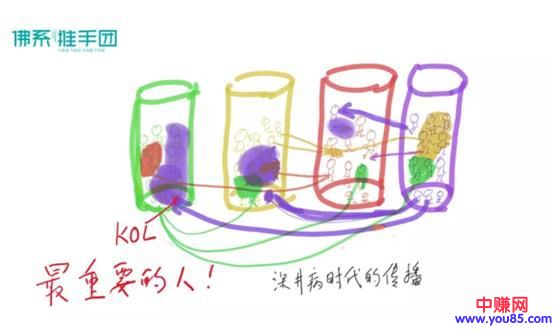 佛系推手团
KOL
最重要的人！
深井病时代的传播
中赚网
www.you85.com